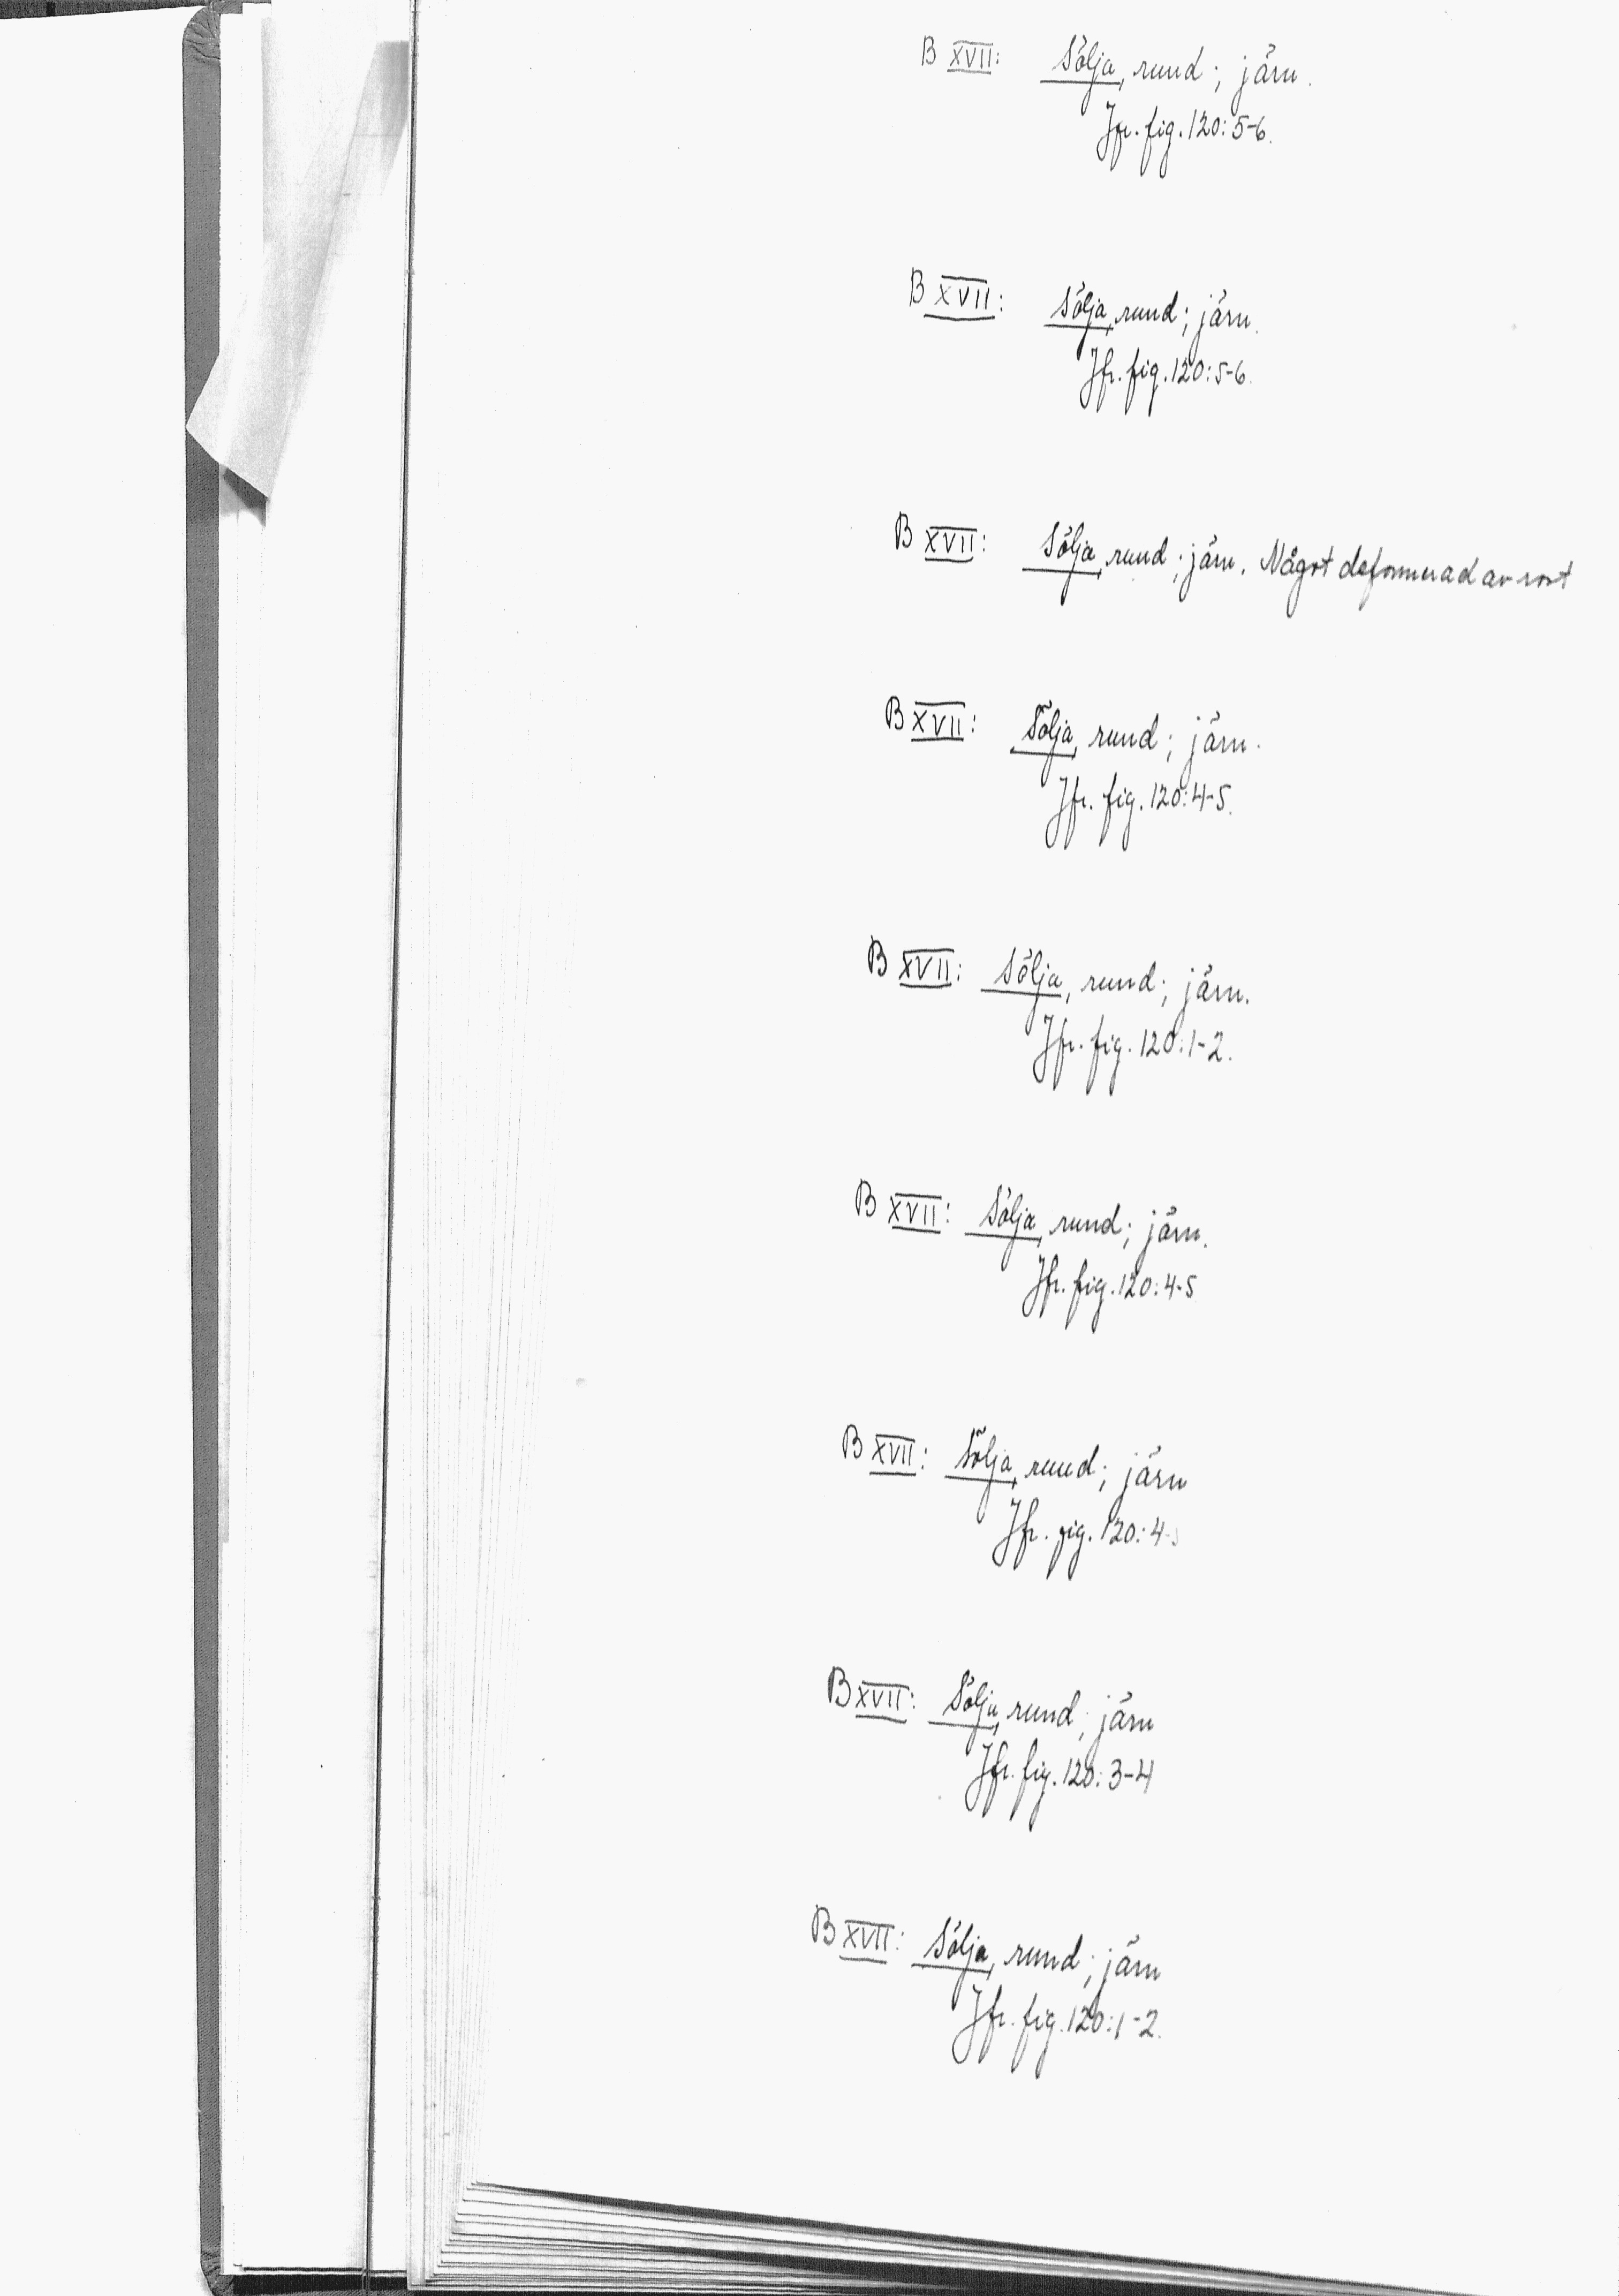 B XVII: Sölja, rund; järn.
Jfr. fig. 120:5-6.
B XVII: Sölja, rund; järn.
Jfr. fig. 120:5-6.
B XVII: Sölja, rund; järn. Något deformerad av rost
B XVII: Sölja, rund; järn.
Jfr. fig. 120:4-5.
B XVII: Sölja, rund; järn.
Jfr. fig. 120:1-2.
B XVII: Sölja, rund; järn.
Jfr. fig. 120:4-5
B XVII: Sölja, rund; järn
Jfr. fig. 120:4-5
B XVII: Sölja, rund; järn
Jfr. fig. 120:3-4
B XVII: Sölja, rund; järn
Jfr. fig. 120:1-2.